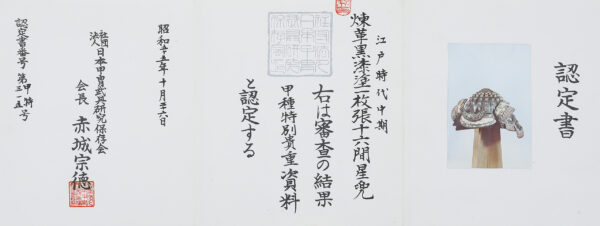 認定書
江戸時代中期
煉革黒漆塗二枚張十六間星兜
右は審査の結果
甲種特別貴重資料
と認定する
昭和五十五年十月 六日
社団法人日本甲冑武具研究保存会
会長 赤城宗徳
認定書番号 第甲特三一五号